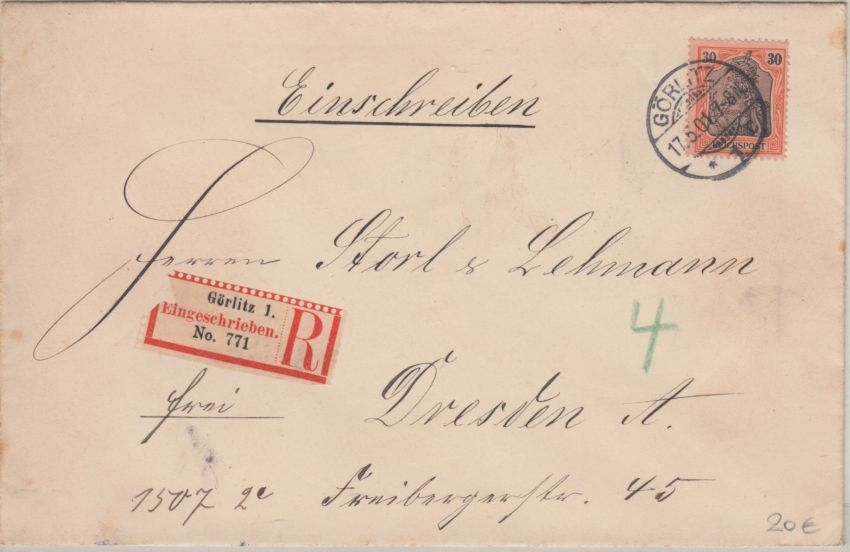 Einschreiben
30 30
REICHSPOST
GÖRLITZ
17.5.01.7-8
* 1
Herren Storl & Lehmann
Görlitz 1.
Eingeschrieben.
No. 771
R
4
frei Dresden A.
1507 2c Freibergerstr. 45
20€